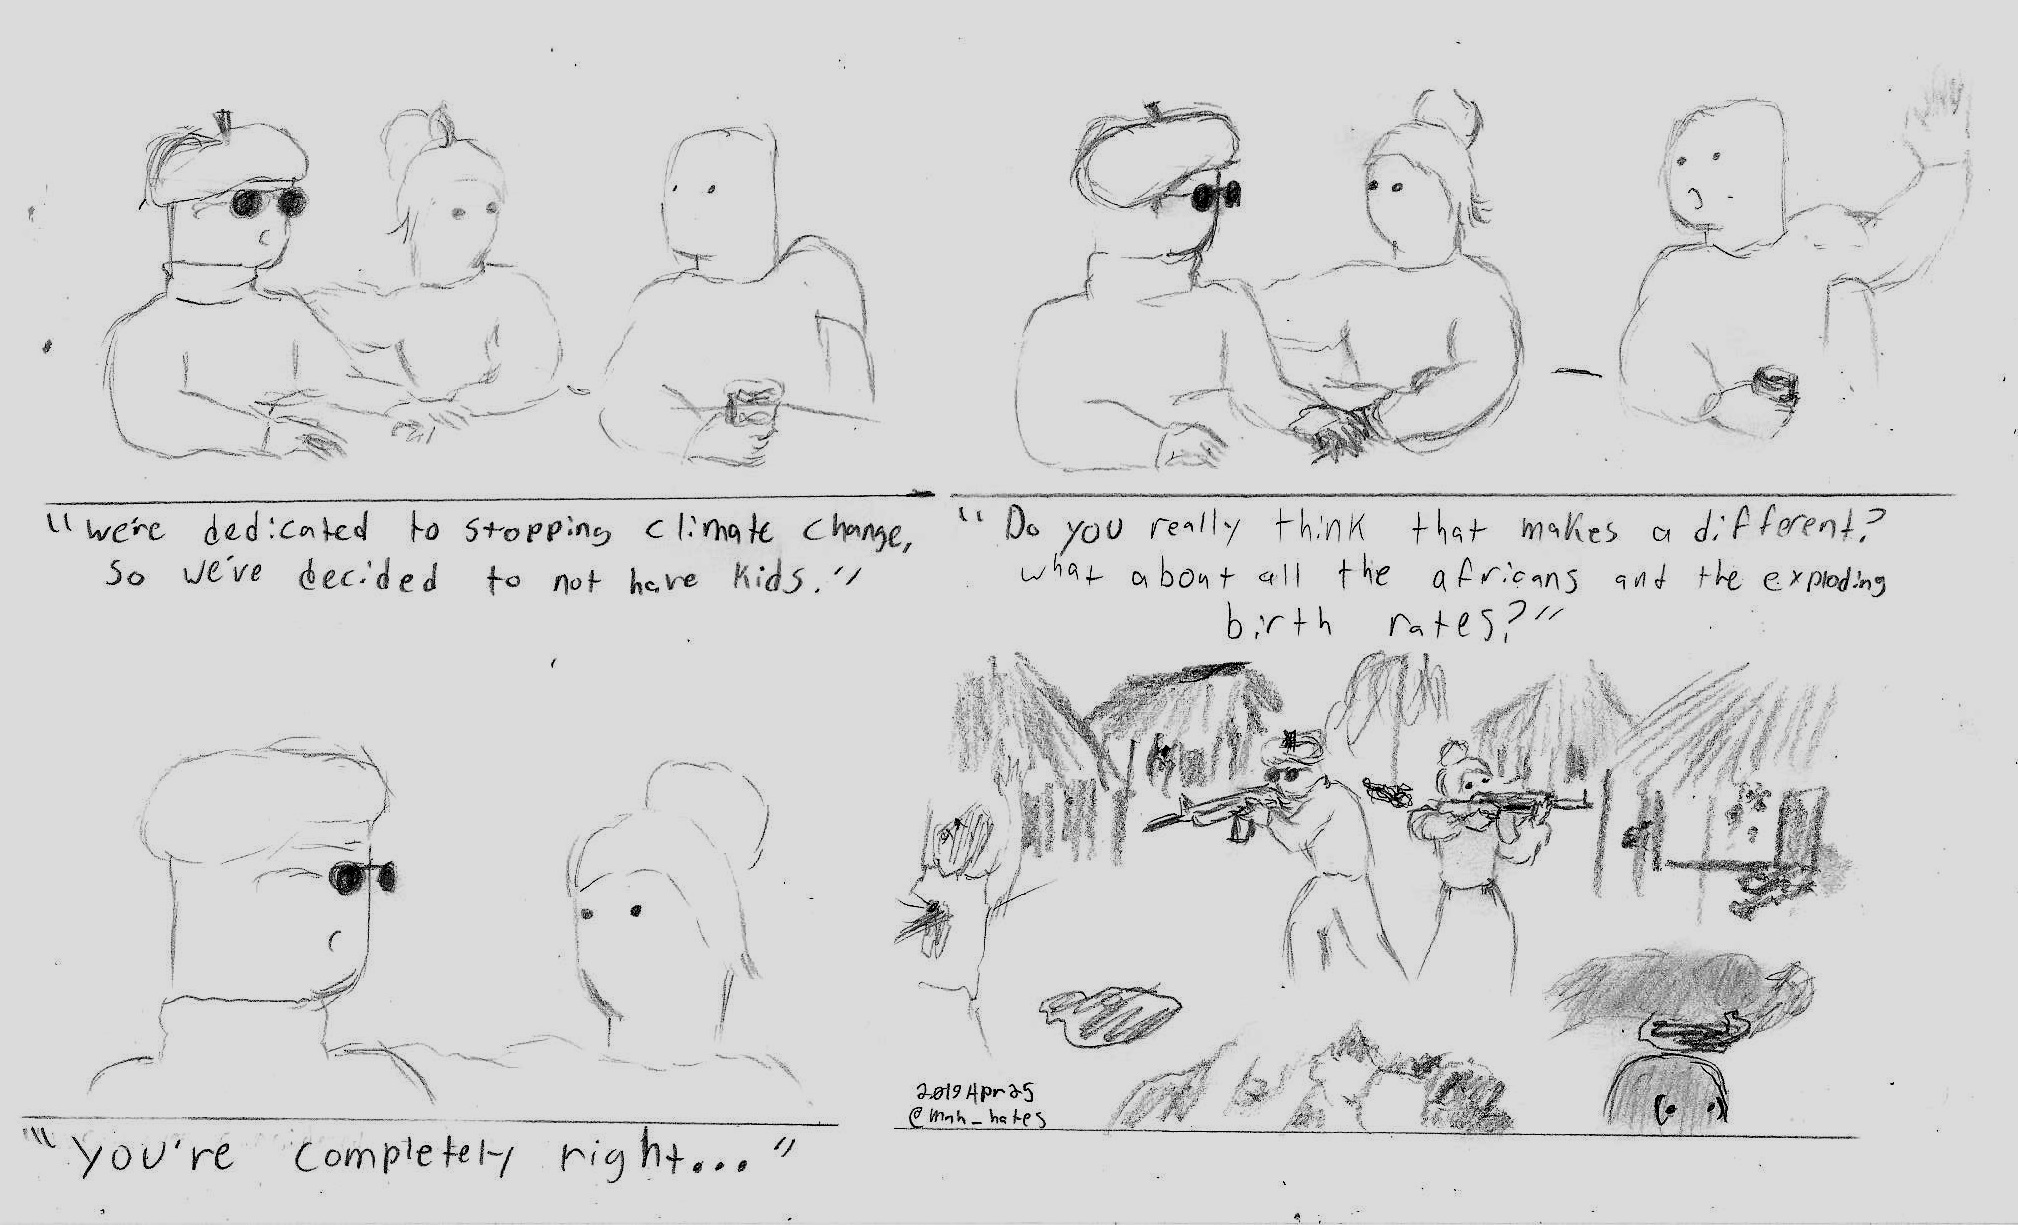 "we're dedicated to stopping climate change,
so we've decided to not have kids."
"Do you really think that makes a different?
what about all the africans and the exploding
birth rates?"
"You're completely right..."
2019Apr25
@mnh_hates